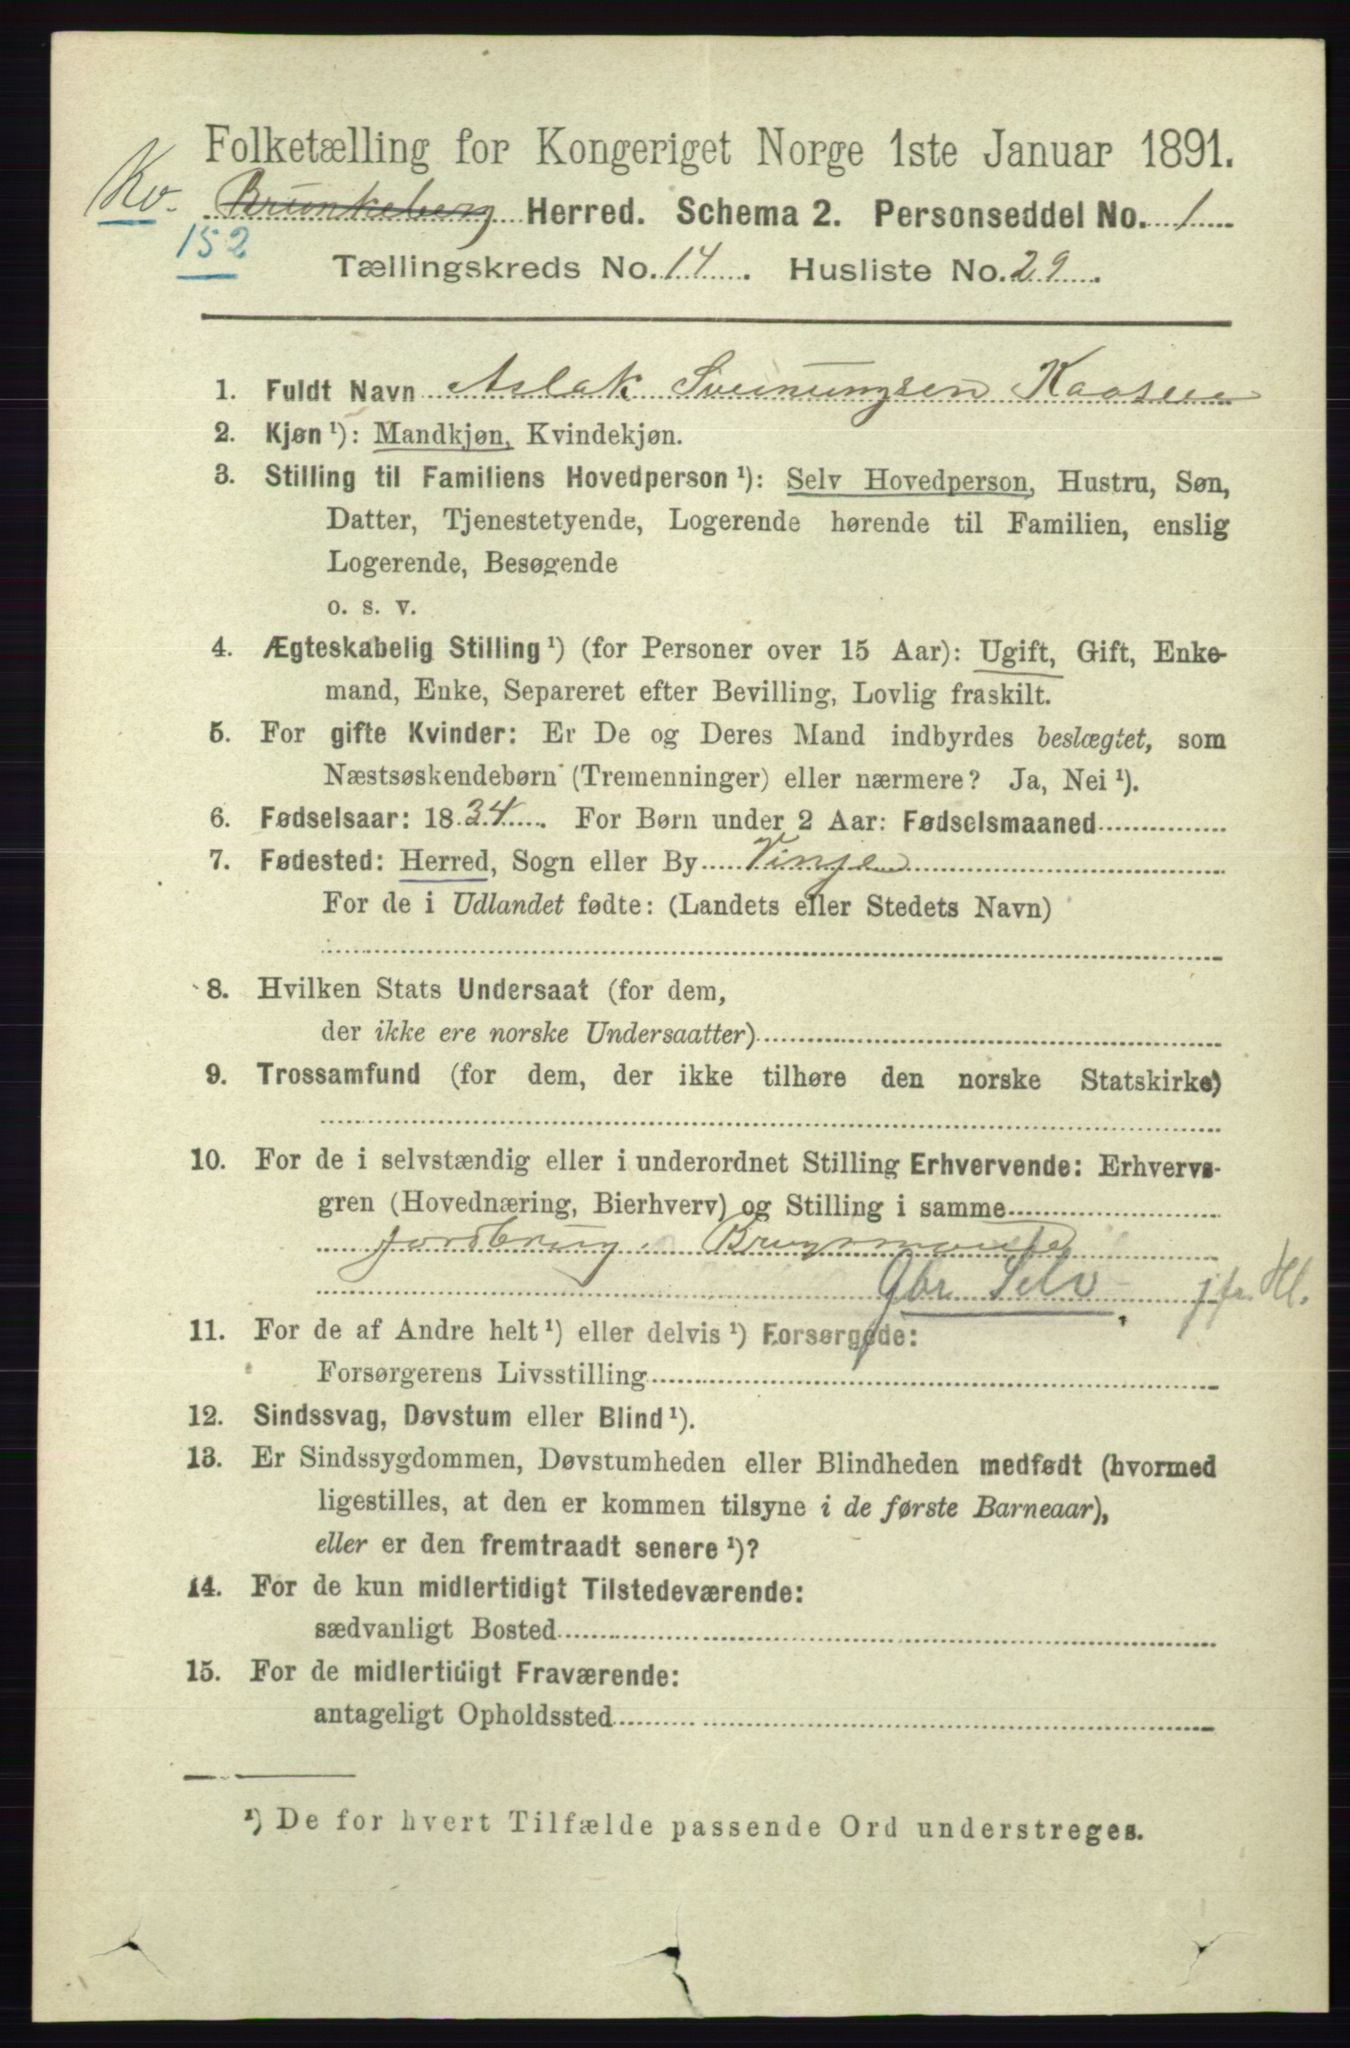 Folketælling for Kongeriget Norge 1ste Januar 1891.
Kv. Brunkeberg Herred. Schema 2. Personseddel No. 1
152
Tællingskreds No. 14. Husliste No. 29.
1. Fuldt Navn Aslak Sveinungsen Kaasen
2. Kjøn ¹): Mandkjøn, Kvindekjøn.
3. Stilling til Familiens Hovedperson ¹): Selv Hovedperson, Hustru, Søn,
Datter, Tjenestetyende, Logerende hørende til Familien, enslig
Logerende, Besøgende
o. s. v.
4. Ægteskabelig Stilling ¹) (for Personer over 15 Aar): Ugift, Gift, Enke-
mand, Enke, Separeret efter Bevilling, Lovlig fraskilt.
5. For gifte Kvinder: Er De og Deres Mand indbyrdes beslægtet, som
Næstsøskendebørn (Tremenninger) eller nærmere? Ja, Nei ¹).
6. Fødselsaar: 1834. For Børn under 2 Aar: Fødselsmaaned
7. Fødested: Herred, Sogn eller By Vinje
For de i Udlandet fødte: (Landets eller Stedets Navn)
8. Hvilken Stats Undersaat (for dem,
der ikke ere norske Undersaatter)
9. Trossamfund (for dem, der ikke tilhøre den norske Statskirke)
10. For de i selvstændig eller i underordnet Stilling Erhvervende: Erhvervs-
gren (Hovednæring, Bierhverv) og Stilling i samme
Jordbrug
Gbr. Selv jfr. Hl.
11. For de af Andre helt ¹) eller delvis ¹) Forsørgede:
Forsørgerens Livsstilling
12. Sindssvag, Døvstum eller Blind ¹).
13. Er Sindssygdommen, Døvstumheden eller Blindheden medfødt (hvormed
ligestilles, at den er kommen tilsyne i de første Barneaar),
eller er den fremtraadt senere ¹)?
14. For de kun midlertidigt Tilstedeværende:
sædvanligt Bosted
15. For de midlertidigt Fraværende:
antageligt Opholdssted
¹) De for hvert Tilfælde passende Ord understreges.